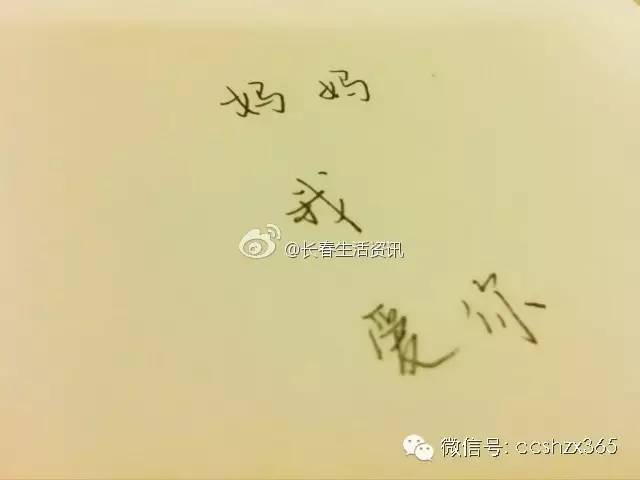 妈妈
我
@长春生活资讯
爱你
微信号: ccshzx365